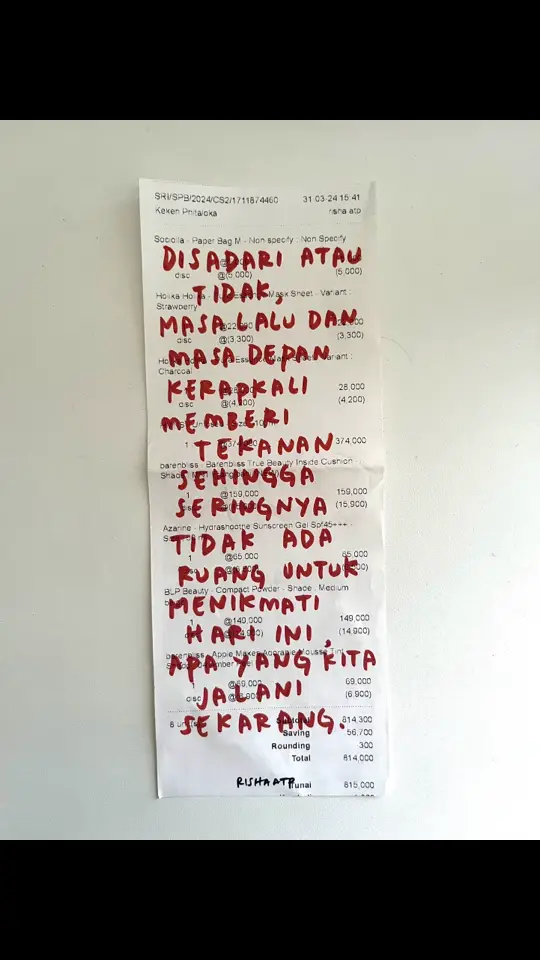 SRI/SPB/2024/CS2/1711874460 31-03-24 15:41
Keken Phitaloka risha atp
Sociolla - Paper Bag M - Non specify : Non Specify
DISADARI ATAU
disc @(5,000) (5,000)
TIDAK,
Mask Sheet - Variant :
Strawberry
MASA LALU DAN
disc @(3,300) (3,300)
MASA DEPAN
Charcoal
KERAPKALI 28,000
disc (4,200)
MEMBERI
TEKANAN 374,000
barenbliss - Barenbliss True Beauty Inside Cushion -
SEHINGGA
1 @159,000 159,000
SERINGNYA (15,900)
Azarine - Hydrashoothe Sunscreen Gel Spf45+++ -
TIDAK ADA
1 @65,000 65,000
RUANG UNTUK
BLP Beauty - Compact Powder - Shade : Medium
MENIKMATI
1 @149,000 149,000
HARI INI, (14,900)
barenbliss - Apple Makes Adorable Mousse Tint -
APA YANG KITA
1 @69,000 69,000
JALANI (6,900)
disc
SEKARANG.
814,300
Saving 56,700
Rounding 300
Total 814,000
RISHAATP
Tunai 815,000